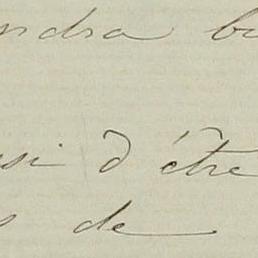 ndra b
si d'être
s de